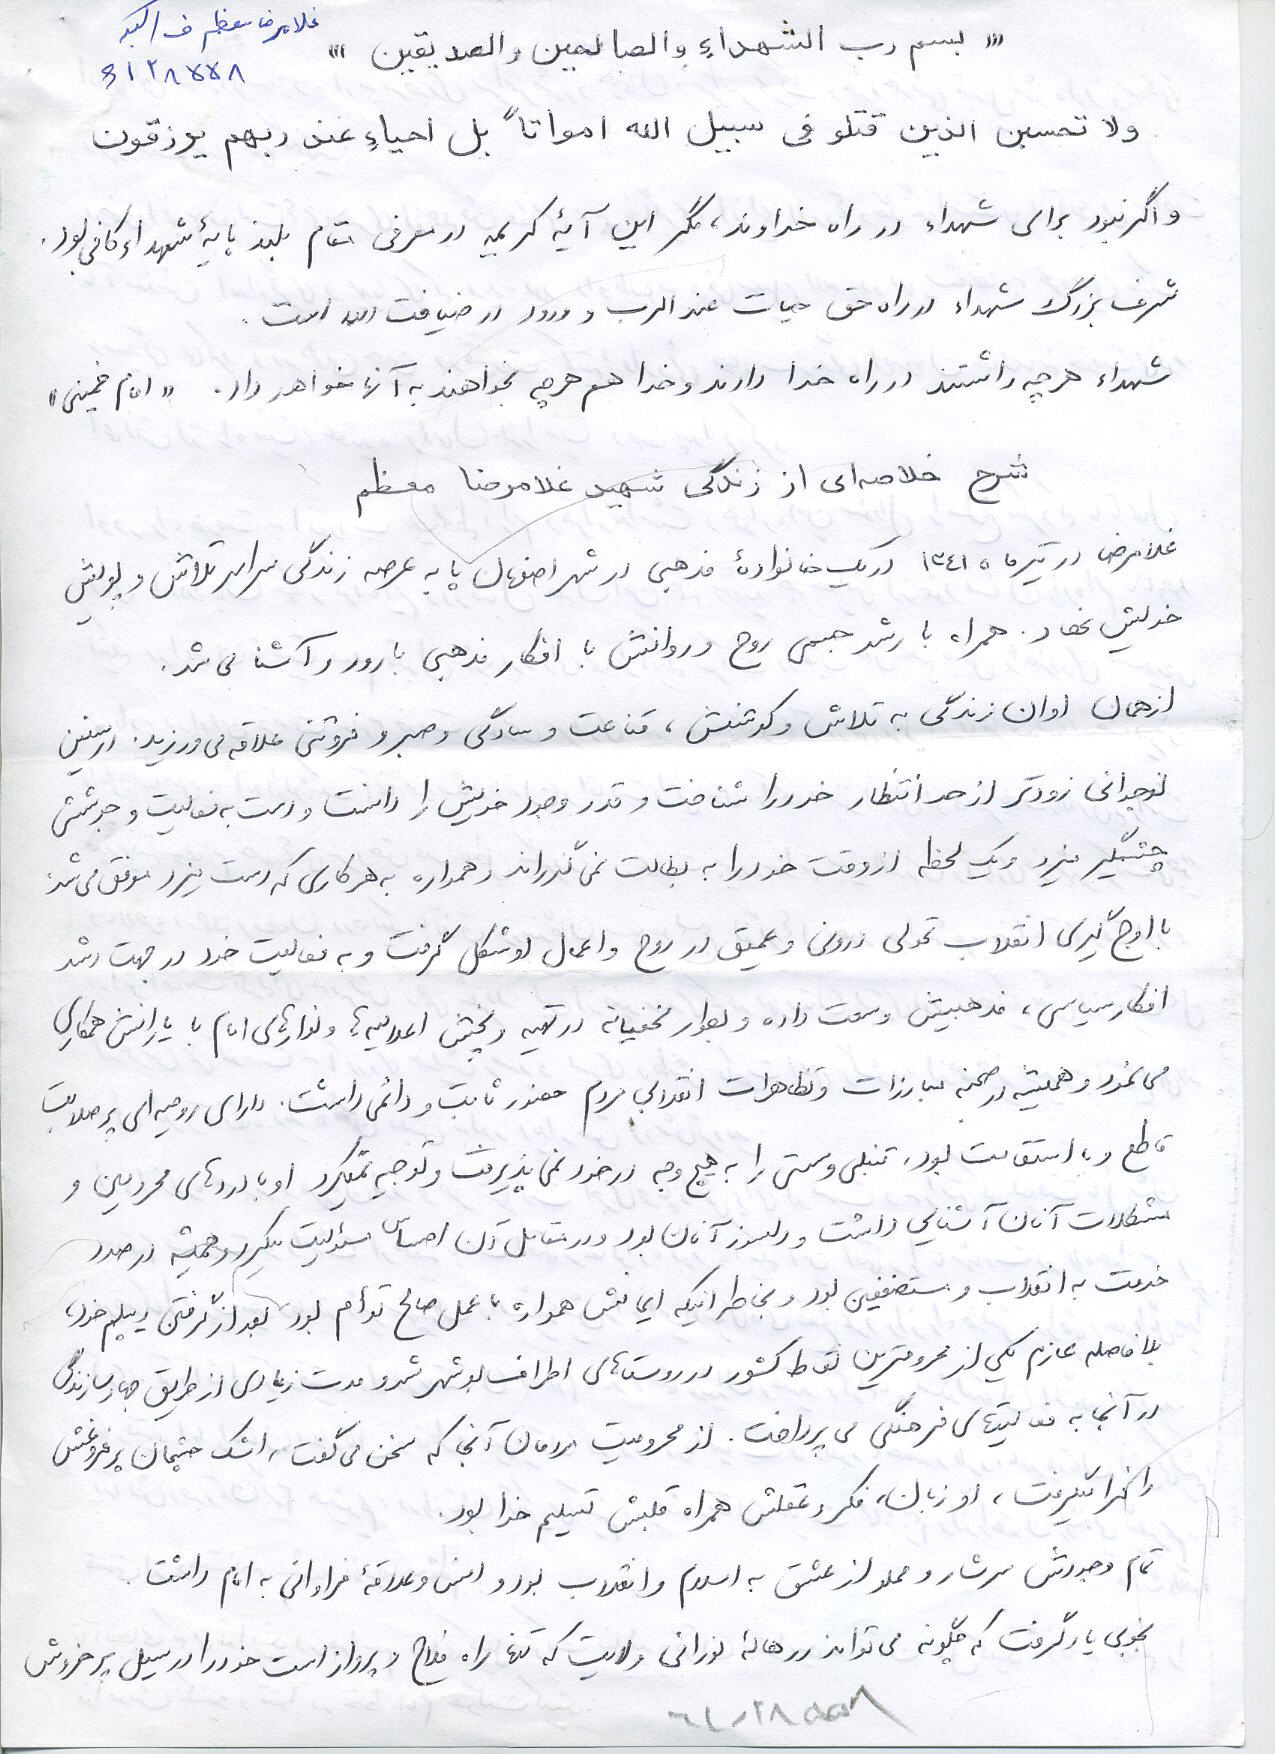 غلامرضا معظم ف اکبر
««« بسم رب الشهداءِ والصالحین والصدیقین »»»
ولا تحسبن الذین قتلو فی سبیل الله امواتاً بل احیاءِ عند ربهم یرزقون
و اگر نبود برای شهداء در راه خداوند، مگر این آیهٔ کریمه در معرفی مقام بلند پایهٔ شهداء کافی بود.
شرف بزرگ شهداء در راه حق حیات عند الرب و ورود در ضیافت الله است.
شهداء هرچه داشتند در راه خدا دادند و خدا هم هرچه بخواهند به آنها خواهد داد. «امام خمینی»
شرح خلاصه‌ای از زندگی شهید غلامرضا معظم
غلامرضا در تیرماه ۱۳٤۱ در یک خانوادهٔ مذهبی در شهر اصفهان پا به عرصه زندگی سراسر تلاش و پویش
خویش نهاد. همراه با رشد جسمی روح و روانش با افکار مذهبی بارور و آشنا می شد.
از همان اوان زندگی به تلاش و کوشش، قناعت و سادگی و صبر و فروتنی علاقه می ورزید. در سنین
نوجوانی زودتر از حد انتظار خود را شناخت و قدر وجود خویش را دانست و دست به فعالیت و جوششی
چشمگیر میزد و یک لحظه از وقت خود را به بطالت نمی گذراند و همواره به هر کاری که دست میزد موفق می شد
با اوج گیری انقلاب تحولی درونی و عمیق در روح و اعمال او شکل گرفت و به فعالیت خود در جهت رشد
افکار سیاسی، مذهبیش وسعت داده و بطور مخفیانه در تهیه و پخش اعلامیه‌ها و نوارهای امام با یارانش همکاری
می نمود و همیشه در صحنه مبارزات و تظاهرات انقلابی مردم حضور ثابت و دائمی داشت. دارای روحیه‌ای پر صلابت
قاطع و با استقامت بود. تنبلی و سستی را به هیچ وجه در خود نمی پذیرفت و توجیه نمیکرد او با دردهای محرومین و
مشکلات آنان آشنایی داشت و دلسوز آنان بود و در مقابل آن احساس مسئولیت میکرد و همیشه در صدد
خدمت به انقلاب و مستضعفین بود و بخاطر اینکه ایمانش همواره با عمل صالح توأم بود بعد از گرفتن دیپلم خود،
بلافاصله عازم یکی از محرومترین نقاط کشور در روستاهای اطراف بوشهر شد و مدت زیادی از طریق جهاد سازندگی
در آنجا به فعالیتهای فرهنگی می پرداخت. از محرومیت مردمان آنجا که سخن می گفت، اشک چشمان پر فروغش
را فرا میگرفت، او زبان، فکر و عقلش همراه قلبش تسلیم خدا بود.
تمام وجودش سرشار و مملو از عشق به اسلام و انقلاب بود و انس و علاقهٔ فراوانی به امام داشت.
بخوبی یاد گرفت که چگونه می تواند در هالهٔ نورانی ولایت که تنها راه فلاح و پرواز است خود را در سیل پر خروش